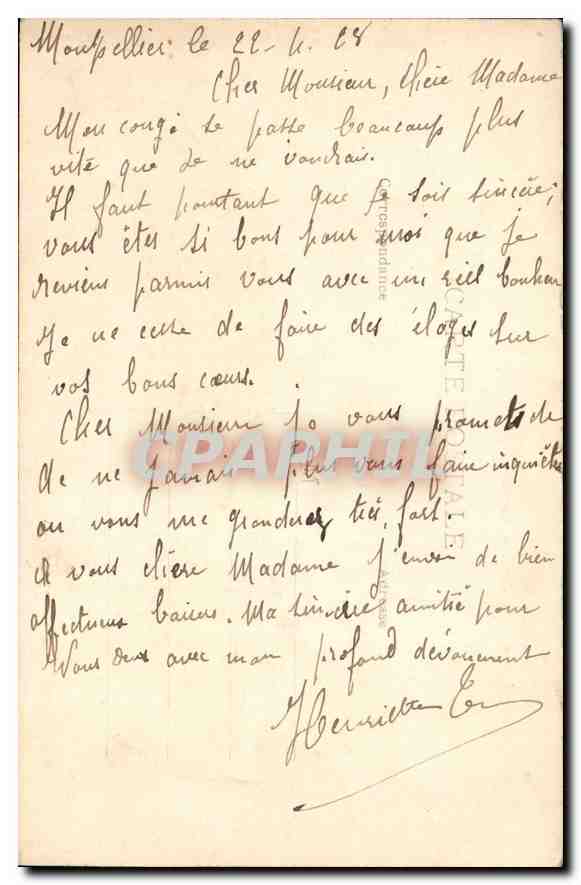 Montpellier le 22-4.08
Cher Monsieur, chère Madame
Mon congé se passe beaucoup plus
vite que je ne voudrais.
Il faut pourtant que je sois sincère;
vous êtes si bons pour moi que je
reviens parmis vous avec un réel bonheur
Je ne cesse de faire des éloges sur
vos bons cœurs.
Cher Monsieur je vous promets de
de ne jamais plus vous faire inquiéter
ou vous me gronderez très fort.
à vous chère Madame j'envoi de bien
affectueux baisers. Ma sincère amitié pour
Vous deux avec mon profond dévouement
Henriette
Correspondance
CARTE POSTALE
Adresse
CPAPHIL